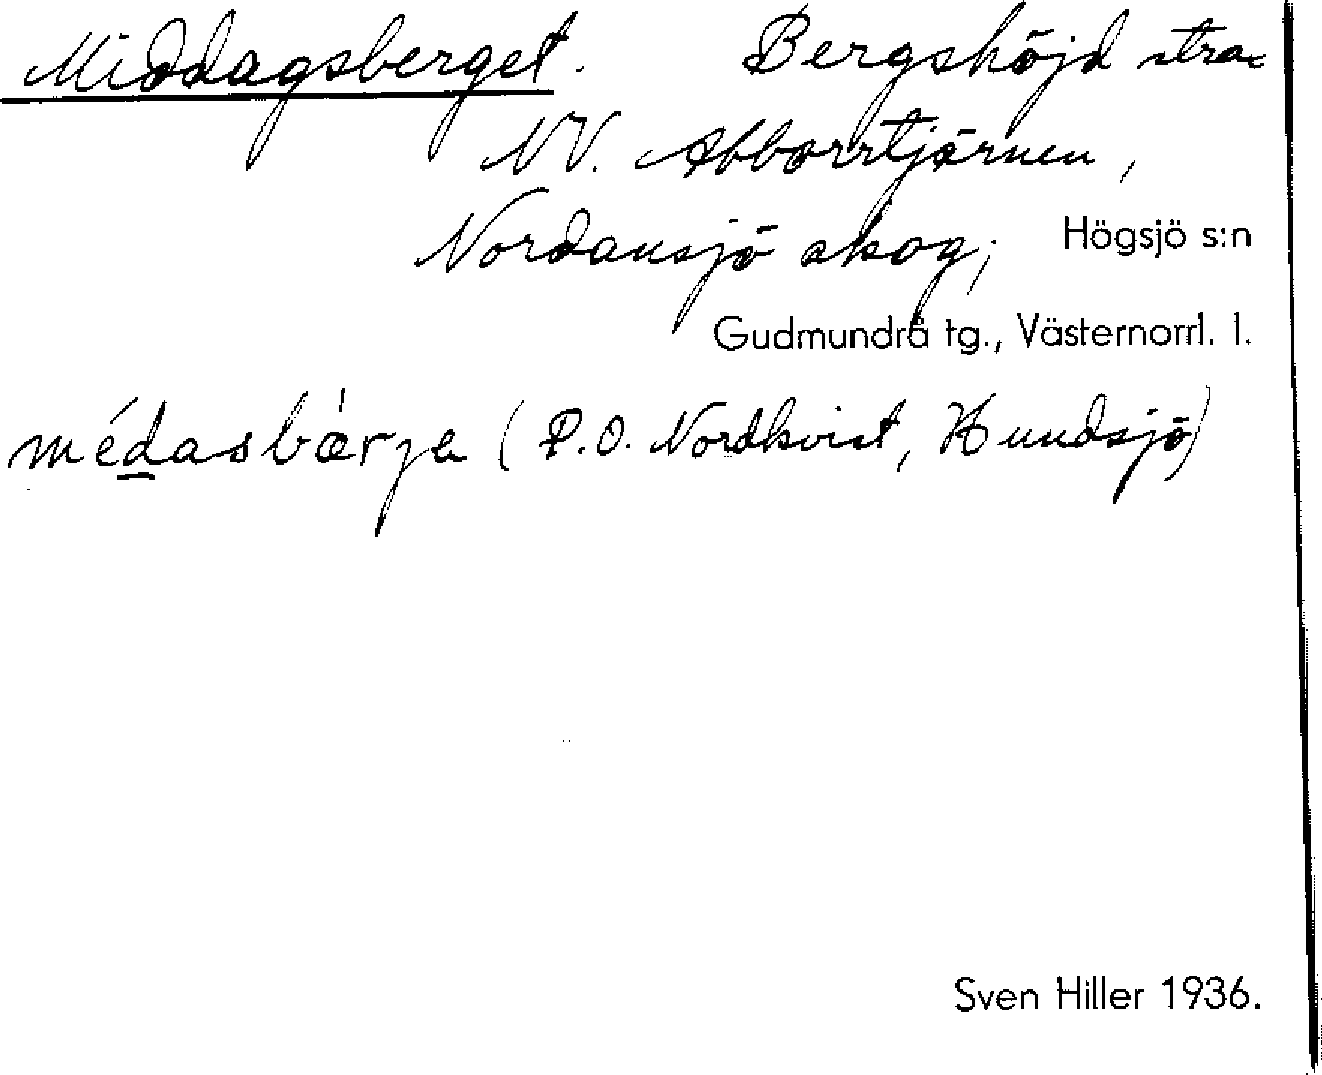 Middagsberget. Bergshöjd strax
NV. Abborrtjärnen,
Nordansjö skog; Högsjö s:n
Gudmundrå tg., Västernorrl. l.
médasbàrja (P.O. Nordkvist, Hundsjö)
Sven Hiller 1936.